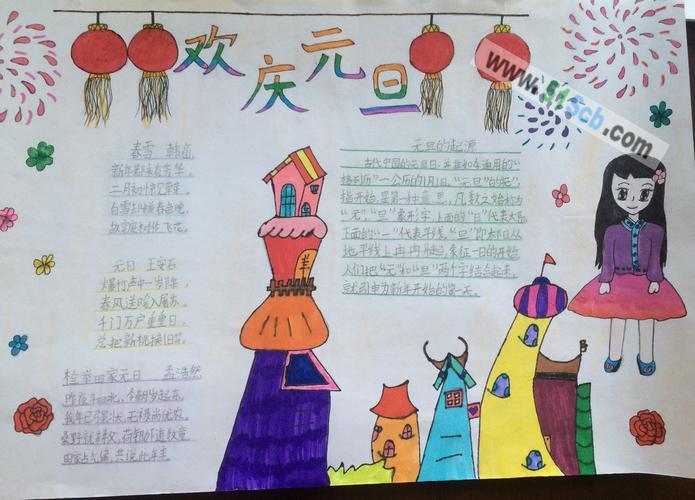 欢庆元旦
www.515cb.com
春雪 韩愈
新年都未有芳华，
二月初惊见草芽。
白雪却嫌春色晚，
故穿庭树作飞花。
元日 王安石
爆竹声中一岁除，
春风送暖入屠苏。
千门万户曈曈日，
总把新桃换旧符。
田家元日 孟浩然
昨夜斗回北，今朝岁起东。
我年已强壮，无禄尚忧农。
桑野就耕父，荷锄随牧童。
田家占气候，共说此年丰。
元旦的起源
古代中国的元旦日，并非如今通用的“
格利历”一公历的1月1日。“元旦”的“元”，
指开始，是第一的意思，凡数之始称为
“元”，“旦”象形字，上面的“日”代表太阳，
下面的“一”代表平线，“旦”即太阳从
地平线上冉冉升起，象征一日的开始
人们把“元”和“旦”两个字结合起来，
就引申为新年开始的第一天。